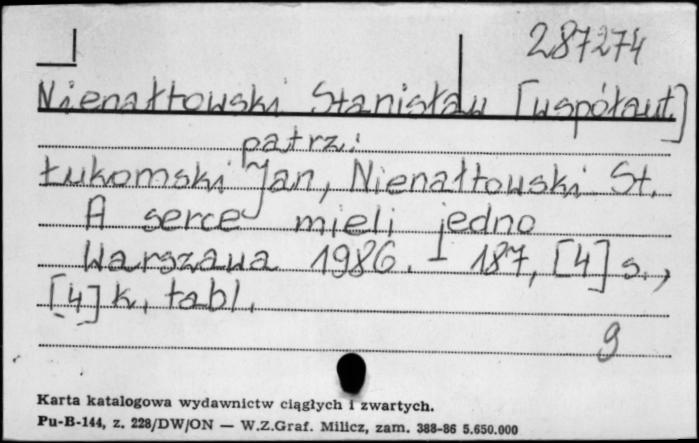 287274
Nienałtowski Stanisław [współaut.]
patrz:
Łukomski Jan, Nienałtowski St.
A serce mieli jedno
Warszawa 1986. - 187, [4] s.,
[4] k. tabl.
9
Karta katalogowa wydawnictw ciągłych i zwartych.
Pu-B-144, z. 228/DW/ON — W.Z.Graf. Milicz, zam. 388-86 5.650.000